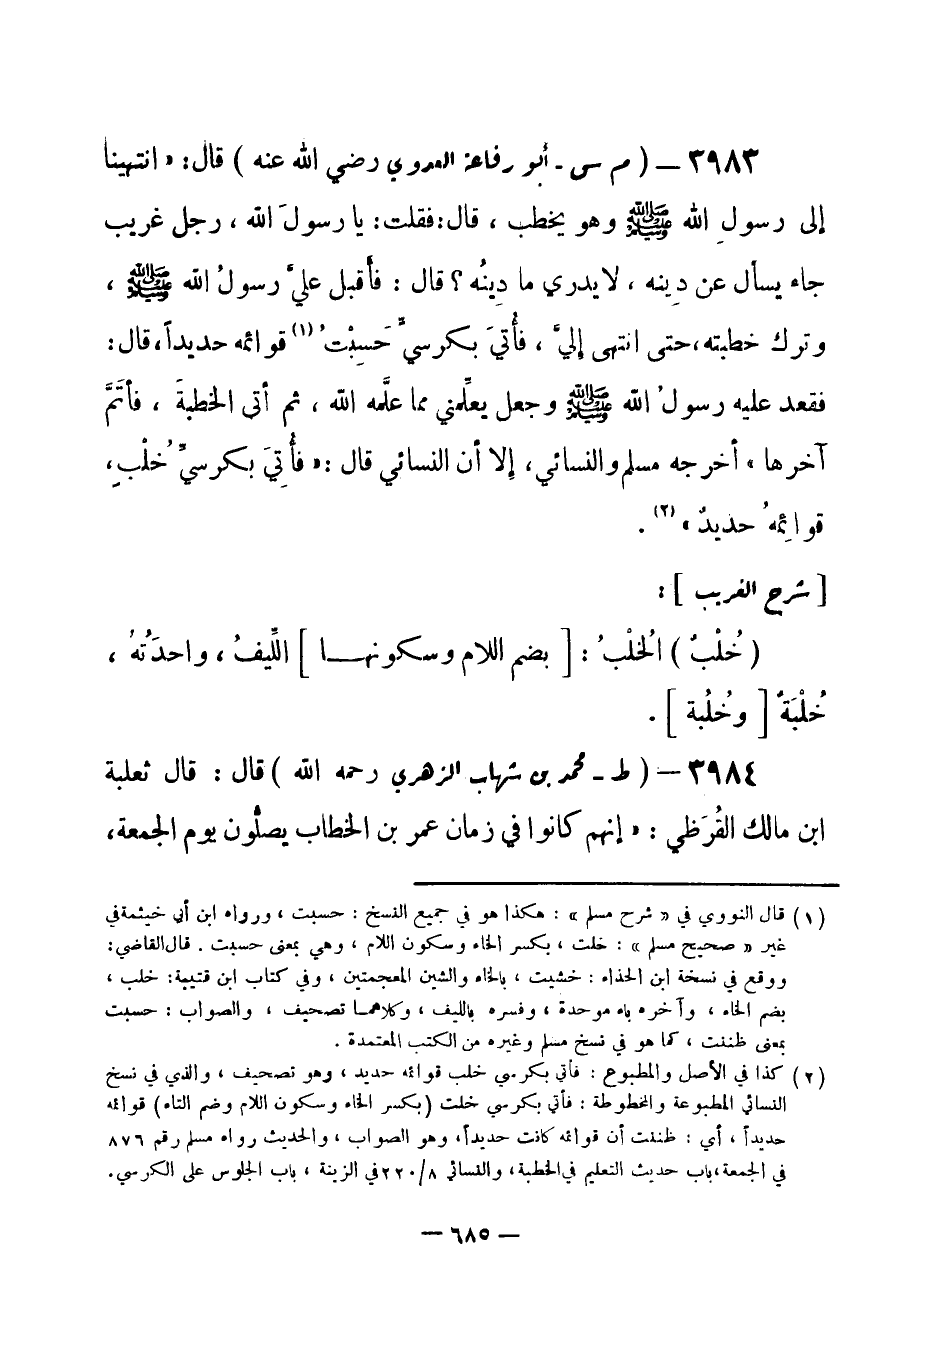 ٣٩٨٣ — ( م س - أبو رفاعة العدوي رضي الله عنه ) قال: « انتهينا
إلى رسولِ الله ﷺ وهو يخطب ، قال:فقلت: يا رسولَ الله ، رجل غريب
جاء يسأل عن دِينه ، لايدري ما دِينُه ؟ قال : فأقبل عليَّ رسولُ الله ﷺ ،
وترك خطبته،حتى انتهى إليَّ ، فأُتيَ بكرسيٍّ حَسِبْتُ (١) قوائمه حديداً،قال:
فقعد عليه رسولُ الله ﷺ وجعل يعلِّمني مما علَّمه الله ، ثم أتى الخطبةَ ، فأتَمَّ
آخرها » أخرجه مسلم والنسائي، إلا أن النسائي قال :« فأُتِيَ بكرسيٍّ خُلْبٍ،
قوائِمهُ حديدٌ » (٢) .
[ شرح الغريب ] :
( خُلْبٌ ) الخُلْبُ : [ بضم اللام وسكونهـا ] اللِّيفُ ، واحدَتُهُ ،
خُلْبَةٌ [ وخُلُبة ] .
٣٩٨٤ — ( ط - محمد بن شهاب الزهري رحمه الله ) قال : قال ثعلبة
ابن مالك القُرَظي : « إنهم كانوا في زمان عمر بن الخطاب يصلُّون يوم الجمعة،
(١) قال النووي في « شرح مسلم » : هكذا هو في جميع النسخ : حسبت ، ورواه ابن أبي خيثمةفي
غير « صحيح مسلم » : خلت ، بكسر الخاء وسكون اللام ، وهي بمعنى حسبت . قال القاضي:
ووقع في نسخة ابن الحذاء : خشيت ، بالخاء والشين المعجمتين ، وفي كتاب ابن قتيبة: خلب ،
بضم الخاء ، وآخره باء موحدة ، وفسره بالليف ، وكلاهمـا تصحيف ، والصواب : حسبت
بمعنى ظننت ، كما هو في نسخ مسلم وغيره من الكتب المعتمدة .
(٢) كذا في الأصل والمطبوع : فأتي بكرسي خلب قوائمه حديد ، وهو تصحيف ، والذي في نسخ
النسائي المطبوعة والمخطوطة : فأتي بكرسي خلت (بكسر الخاء وسكون اللام وضم التاء) قوائمه
حديداً ، أي : ظننت أن قوائمه كانت حديداً، وهو الصواب ، والحديث رواه مسلم رقم ٨٧٦
في الجمعة،باب حديث التعليم في الخطبة، والنسائي ٨/٢٢٠في الزينة ، باب الجلوس على الكرسي.
— ٦٨٥ —